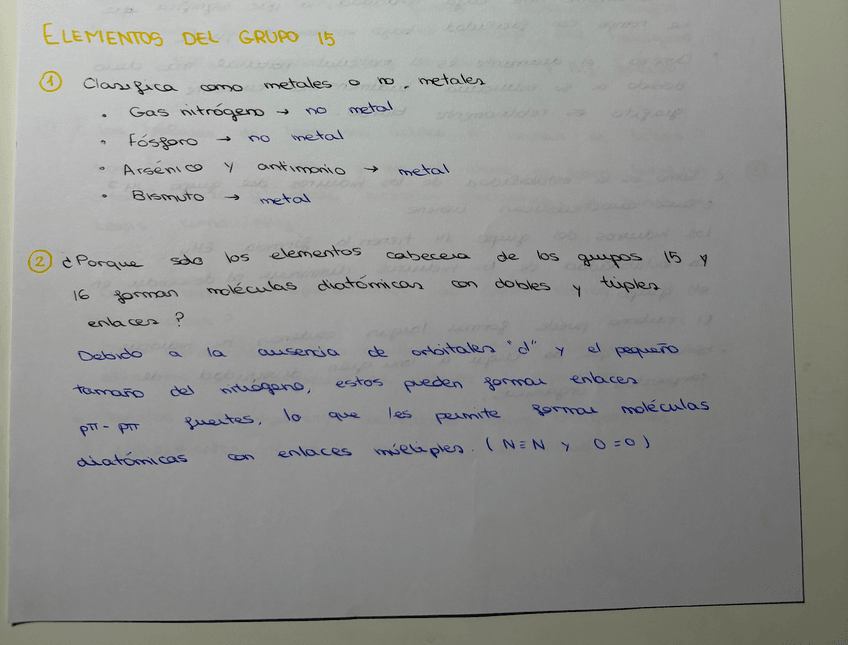 ELEMENTOS DEL GRUPO 15
① Clasifica como metales o no metales
• Gas nitrógeno → no metal
• Fósforo → no metal
• Arsénico y antimonio → metal
• Bismuto → metal
② ¿Porque solo los elementos cabecera de los grupos 15 y
16 forman moléculas diatómicas con dobles y triples
enlaces?
Debido a la ausencia de orbitales "d" y el pequeño
tamaño del nitrógeno, estos pueden formar enlaces
pπ-pπ fuertes, lo que les permite formar moléculas
diatómicas con enlaces múltiples. (N≡N y O=O)